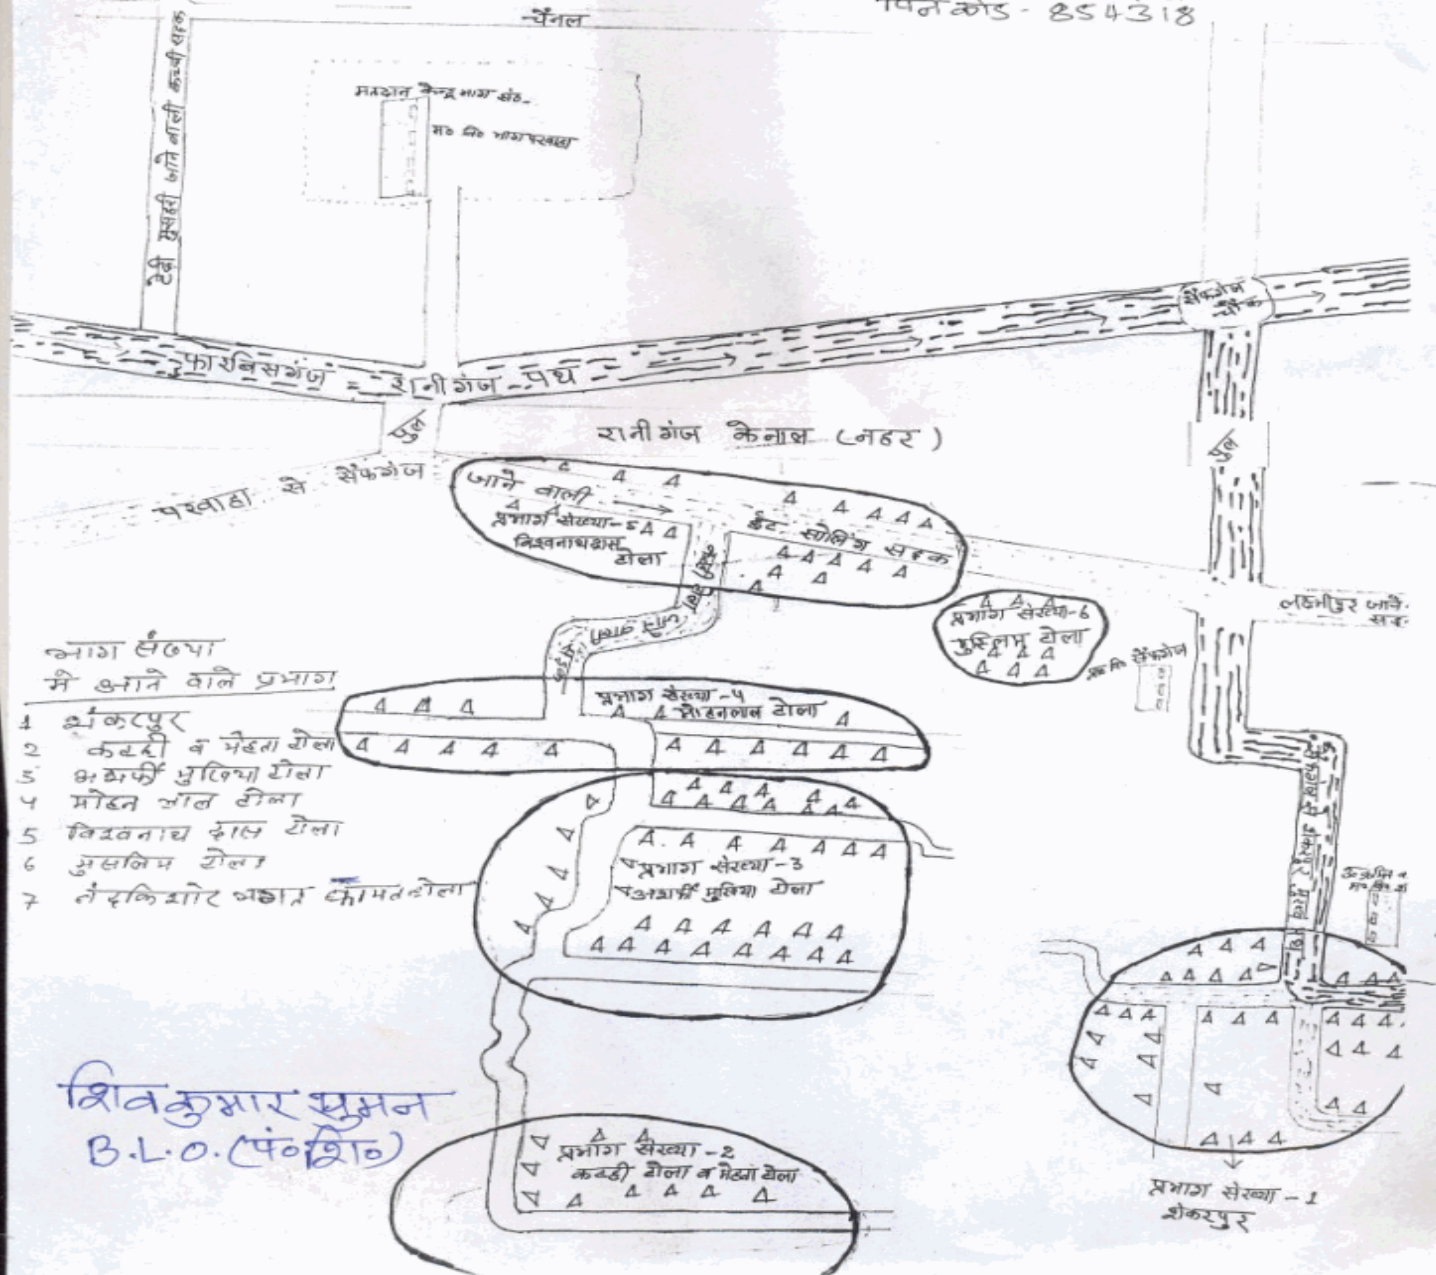 पिन कोड - 854318
चैनल
टेढी मुसहरी जाने वाली कच्ची सड़क
मतदान केन्द्र भाग सं०-
म० वि० भाग परवाहा
सैफगंज
चौक
फारबिसगंज = रानीगंज पथ
पुल
रानीगंज केनाल (नहर)
पुल
परवाहा से सैफगंज
जाने वाली
ईट सोलिंग सड़क
प्रभाग संख्या-5
विश्वनाथ दास
टोला
जाने वाली
प्रभाग संख्या-6
मुस्लिम टोला
लक्ष्मीपुर जाने
सैफगंज
भाग संख्या
मे आने वाले प्रभाग
1 शंकरपुर
2 कटही व मेहता टोला
3 अशर्फी मुखिया टोला
4 मोहन लाल टोला
5 विश्वनाथ दास टोला
6 मुसलिम टोला
7 नंदकिशोर भगत कामत टोला
प्रभाग संख्या-4
मोहनलाल टोला
सैफगंज से शंकरपुर मुख्य पथ
प्रभाग संख्या-3
अशर्फी मुखिया टोला
शिव कुमार सुमन
B.L.O. (पं० शि०)
प्रभाग संख्या-2
कटही टोला व मेहता टोला
प्रभाग संख्या-1
शंकरपुर